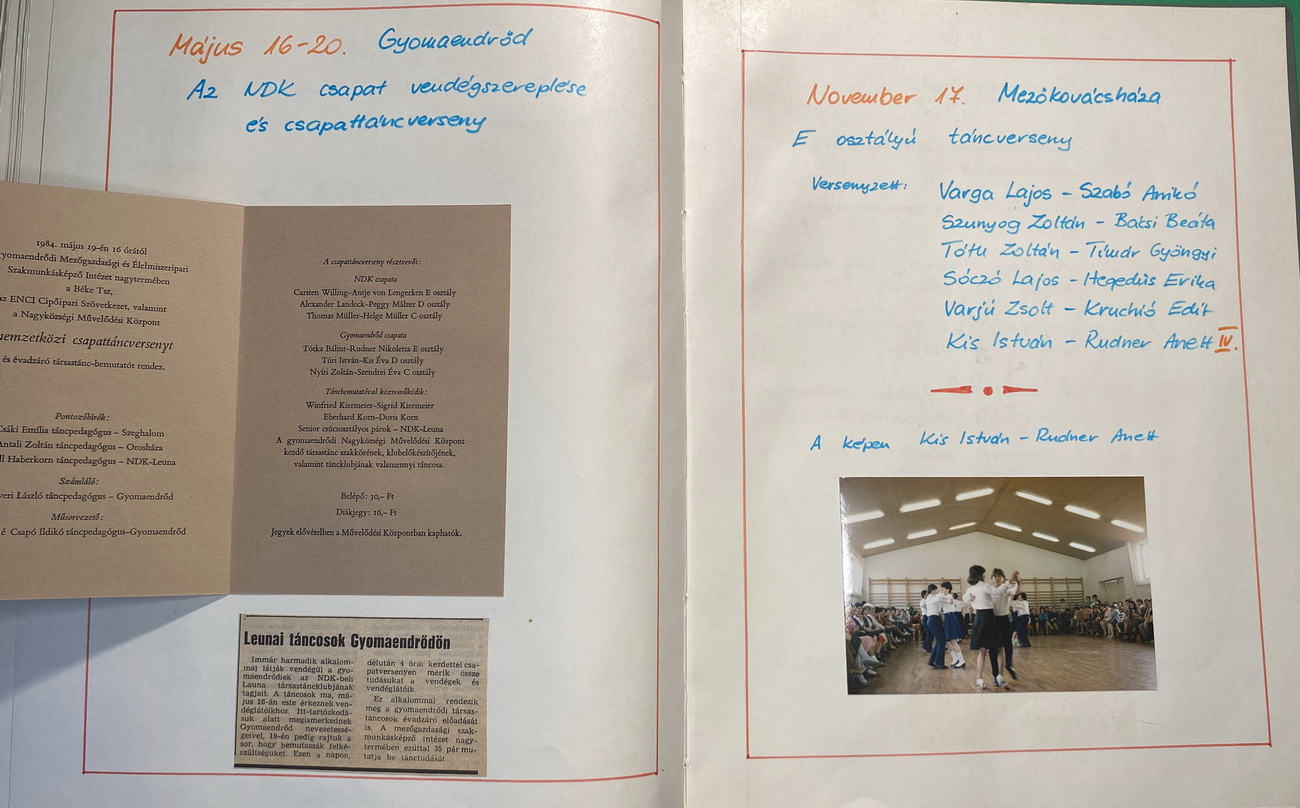 Május 16-20. Gyomaendrőd
Az NDK csapat vendégszereplése
és csapattáncverseny
1984. május 19-én 16 órától
Gyomaendrődi Mezőgazdasági és Élelmiszeripari
Szakmunkásképző Intézet nagytermében
a Béke Tsz,
az ENCI Cipőipari Szövetkezet, valamint
a Nagyközségi Művelődési Központ
nemzetközi csapattáncversenyt
és évadzáró társastánc-bemutatót rendez.
Pontozóbírók:
Csáki Emília táncpedagógus – Szeghalom
Antali Zoltán táncpedagógus – Orosháza
Haberkorn táncpedagógus – NDK-Leuna
Számláló:
László táncpedagógus – Gyomaendrőd
Műsorvezető:
Csapó Ildikó táncpedagógus–Gyomaendrőd
A csapattáncverseny résztvevői:
NDK csapata
Carsten Willing–Antje von Lengerken E osztály
Alexander Landeck–Peggy Mälzer D osztály
Thomas Müller–Helge Müller C osztály
Gyomaendrőd csapata
Tótka Bálint–Rudner Nikoletta E osztály
Túri István–Kis Éva D osztály
Nyíri Zoltán–Szendrei Éva C osztály
Táncbemutatóval közreműködik:
Winfried Kiermeier–Sigrid Kiermeier
Eberhard Korn–Doris Korn
Senior csúcsosztályos párok – NDK-Leuna
A gyomaendrődi Nagyközségi Művelődési Központ
kezdő társastánc szakkörének, klubelőkészítőjének,
valamint táncklubjának valamennyi táncosa.
Belépő: 30,– Ft
Diákjegy: 16,– Ft
Jegyek elővételben a Művelődési Központban kaphatók.
Leunai táncosok Gyomaendrődön
Immár harmadik alkalom-
maj látják vendégül a gyo-
maendrődiek az NDK-beli
Launa társastáncklubjának
tagjait. A táncosok ma, má-
jus 16-án este érkeznek ven-
déglátóikhoz. Itt-tartózkodá-
suk alatt megismerkednek
Gyomaendrőd nevezetessé-
geivel, 19-én pedig rajtuk a
sor, hogy bemutassák felké-
szültségüket. Ezen a napon,
délután 4 órai kezdettel csa-
patversenyen mérik össze
tudásukat a vendégek és
vendéglátóik.
Ez alkalommal rendezik
meg a gyomaendrődi társas-
táncosok évadzáró előadását
is. A mezőgazdasági szak-
munkásképző intézet nagy-
termében ezúttal 35 pár mu-
tatja be tánctudását
November 17. Mezőkovácsháza
E osztályú táncverseny
Versenyzett:
Varga Lajos – Szabó Anikó
Szunyog Zoltán – Bácsi Beáta
Tóth Zoltán – Tímár Gyöngyi
Sóczó Lajos – Hegedűs Erika
Varjú Zsolt – Kruchió Edit
Kis István – Rudner Anett IV.
A képen Kis István – Rudner Anett